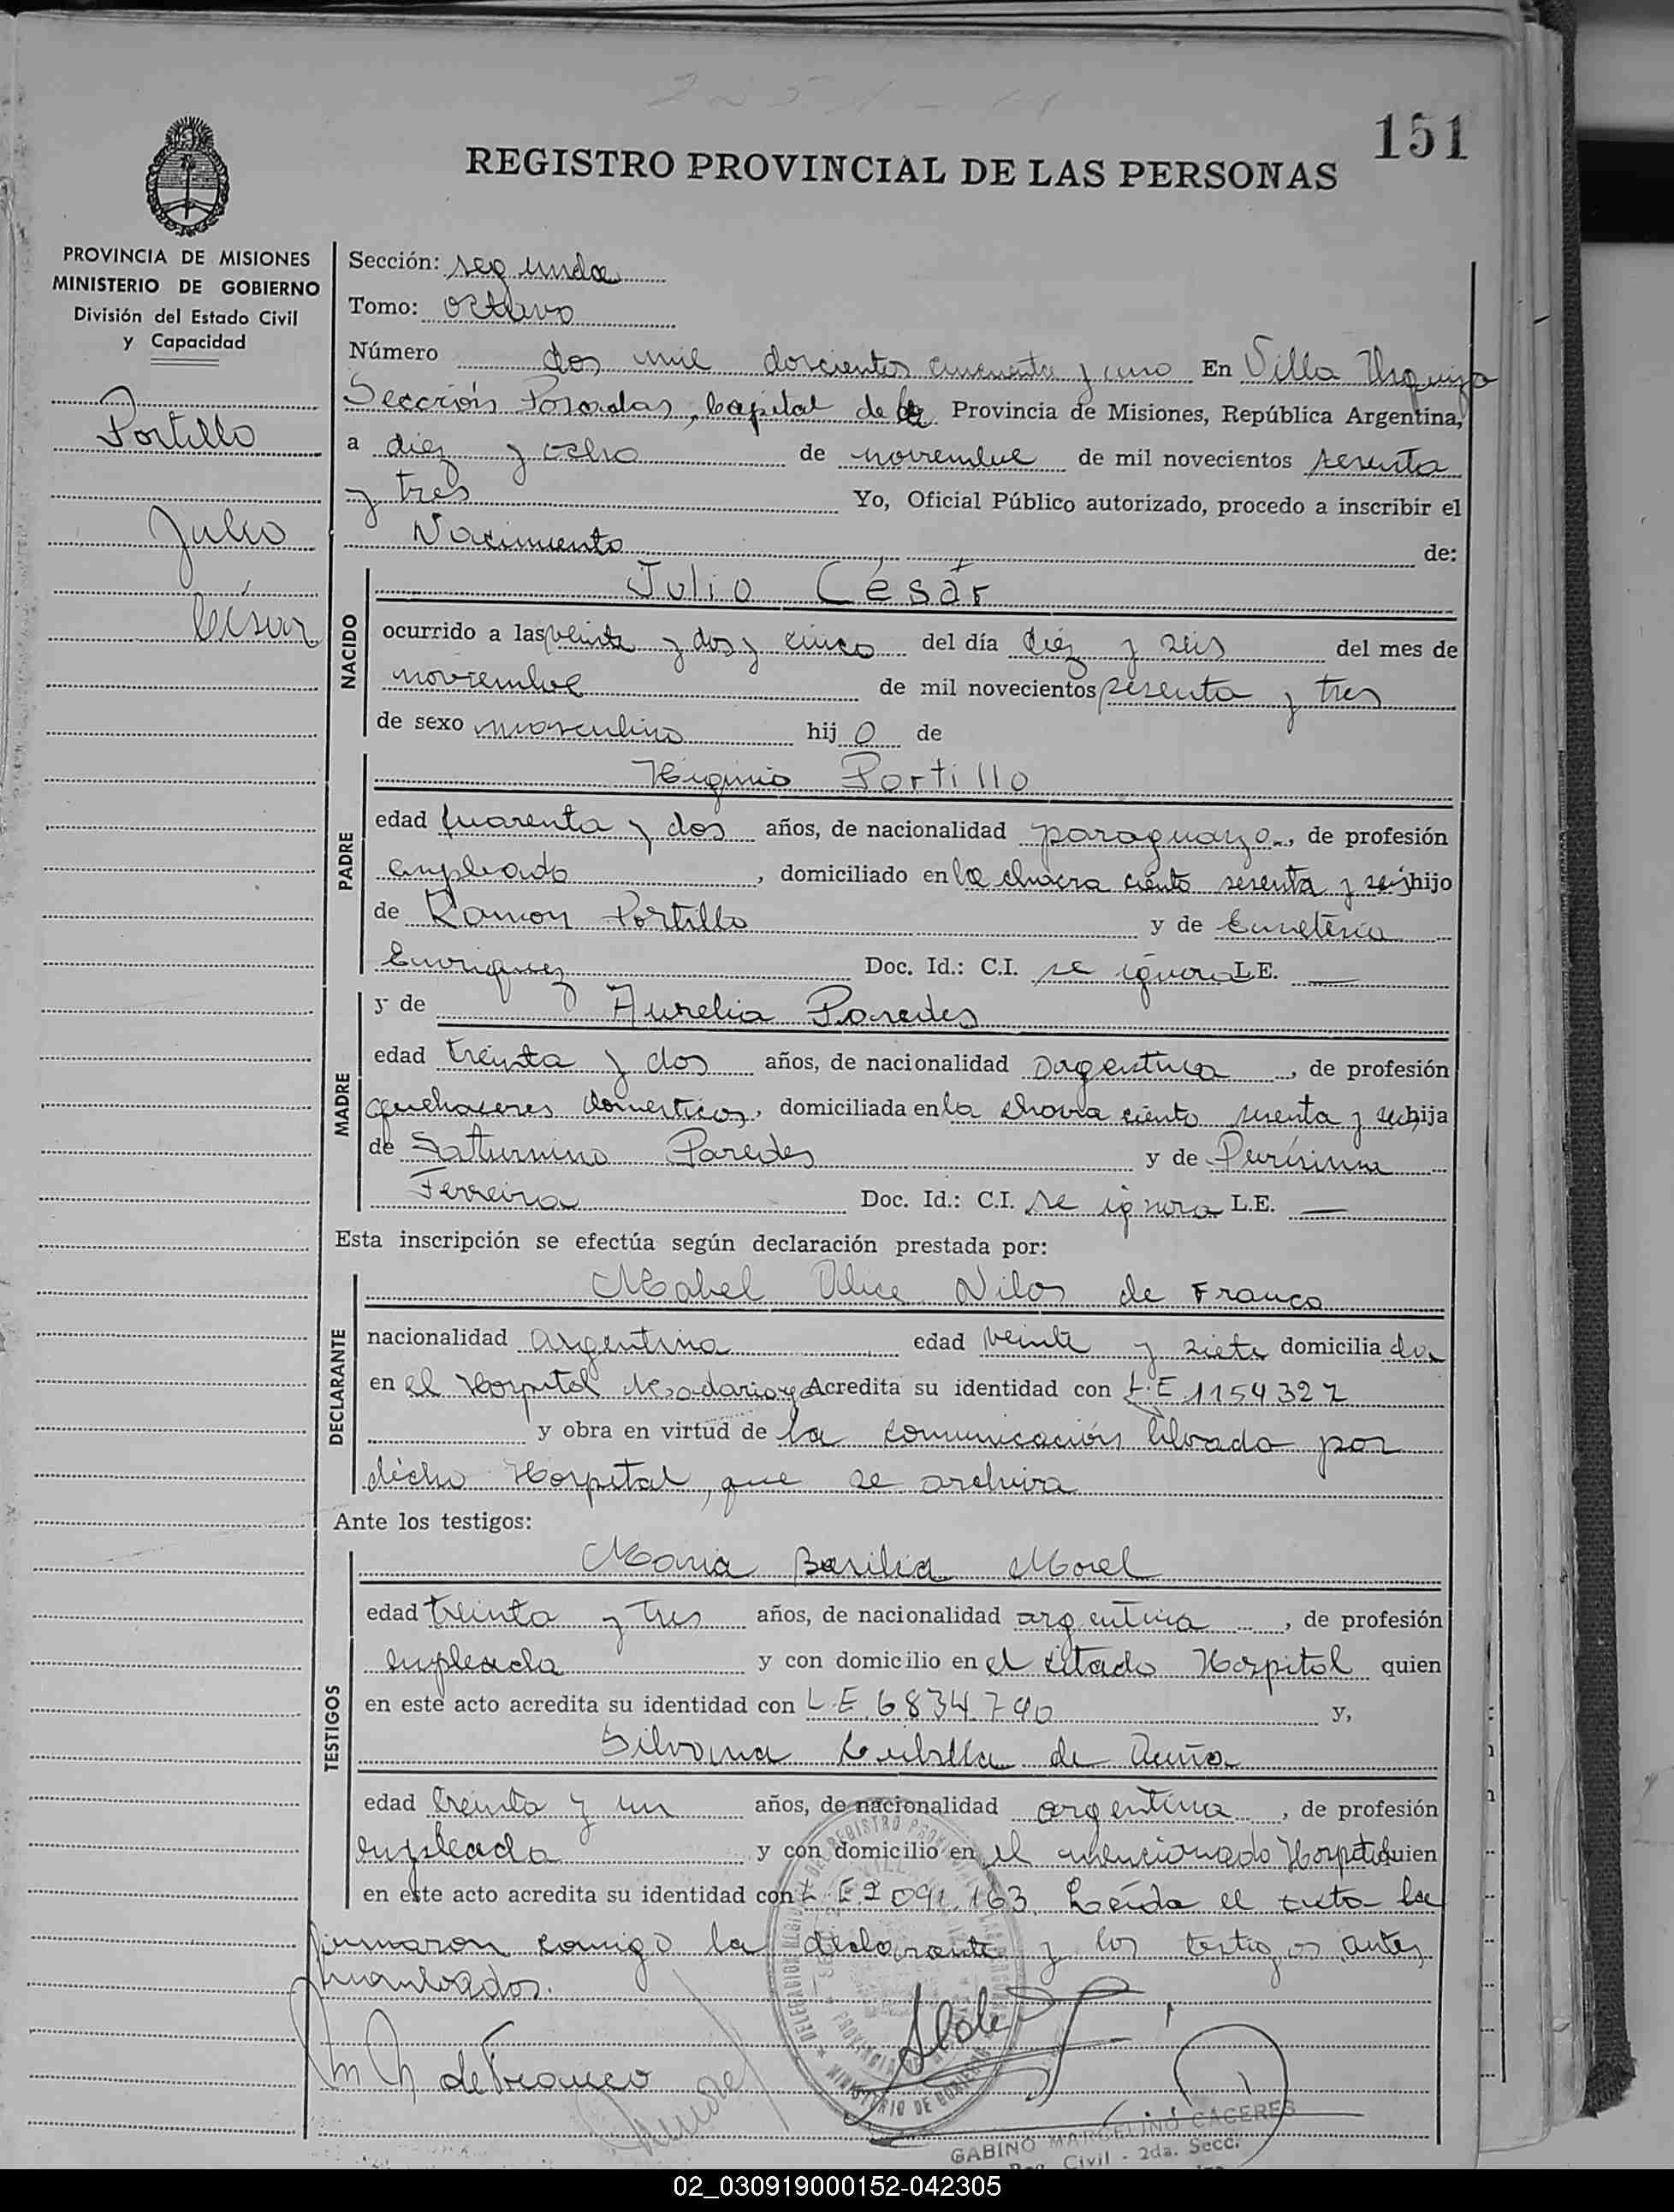 151
REGISTRO PROVINCIAL DE LAS PERSONAS
PROVINCIA DE MISIONES
MINISTERIO DE GOBIERNO
División del Estado Civil
y Capacidad
Portillo
Julio
César
Sección: segunda
Tomo: octavo
Número dos mil doscientos cincuenta y uno En Villa Urquiza
Sección Posadas, Capital de la Provincia de Misiones, República Argentina,
a diez y ocho de noviembre de mil novecientos sesenta
y tres Yo, Oficial Público autorizado, procedo a inscribir el
Nacimiento de:
NACIDO
Julio César
ocurrido a las veinte y dos y cinco del día diez y seis del mes de
noviembre de mil novecientos sesenta y tres
de sexo masculino hijo de
PADRE
Higinio Portillo
edad cuarenta y dos años, de nacionalidad paraguayo, de profesión
empleado, domiciliado en la chacra ciento sesenta y seis hijo
de Ramon Portillo y de Emeteria
Enriquez Doc. Id.: C.I. se ignora L.E. —
MADRE
y de Aurelia Paredes
edad treinta y dos años, de nacionalidad argentina, de profesión
quehaceres domesticos, domiciliada en la chacra ciento sesenta y seis hija
de Saturnino Paredes y de Purisima
Ferreira Doc. Id.: C.I. se ignora L.E. —
Esta inscripción se efectúa según declaración prestada por:
DECLARANTE
Mabel de Franco
nacionalidad argentina edad veinte y siete domiciliada
en el Hospital Madariaga Acredita su identidad con L.E 1154327
y obra en virtud de la comunicación librada por
dicho Hospital, que se archiva
Ante los testigos:
TESTIGOS
Maria Basilia Morel
edad treinta y tres años, de nacionalidad argentina, de profesión
empleada y con domicilio en el citado Hospital quien
en este acto acredita su identidad con L.E. 6834790 y,
Silvana de Acuña
edad treinta y un años, de nacionalidad argentina, de profesión
empleada y con domicilio en el mencionado Hospital quien
en este acto acredita su identidad con L E 2 091.163. Leída el acta la
firmaron conmigo la declarante y los testigos antes
nombrados.
de Franco
MINISTERIO DE GOBIERNO
GABINO MARCELINO CACERES
Reg. Civil - 2da. Secc.
02_030919000152-042305